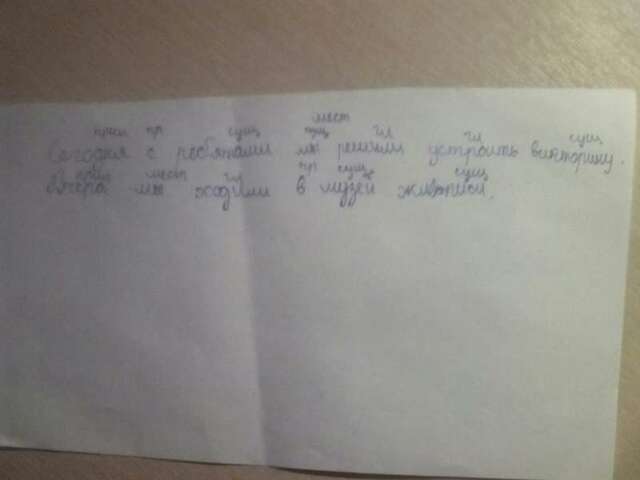 мест
пр сущ гл гл сущ
Сегодня с ребятами мы решили устроить викторину.
мест гл пр сущ сущ
Вчера мы ходили в музей живописи.